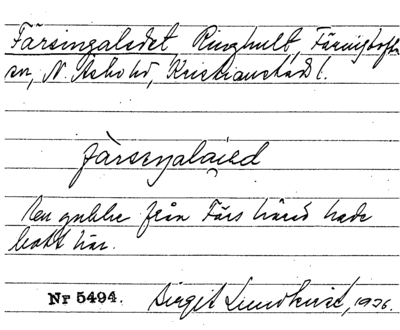 Färsingaledet Ringhult, Färingtofta
sn, N. Åsbo hd, Kristianstads l.
färseŋalaied
En gubbe från Färs härad hade
bott här.
Nr 5494. Birgit Lundkvist, 1936.